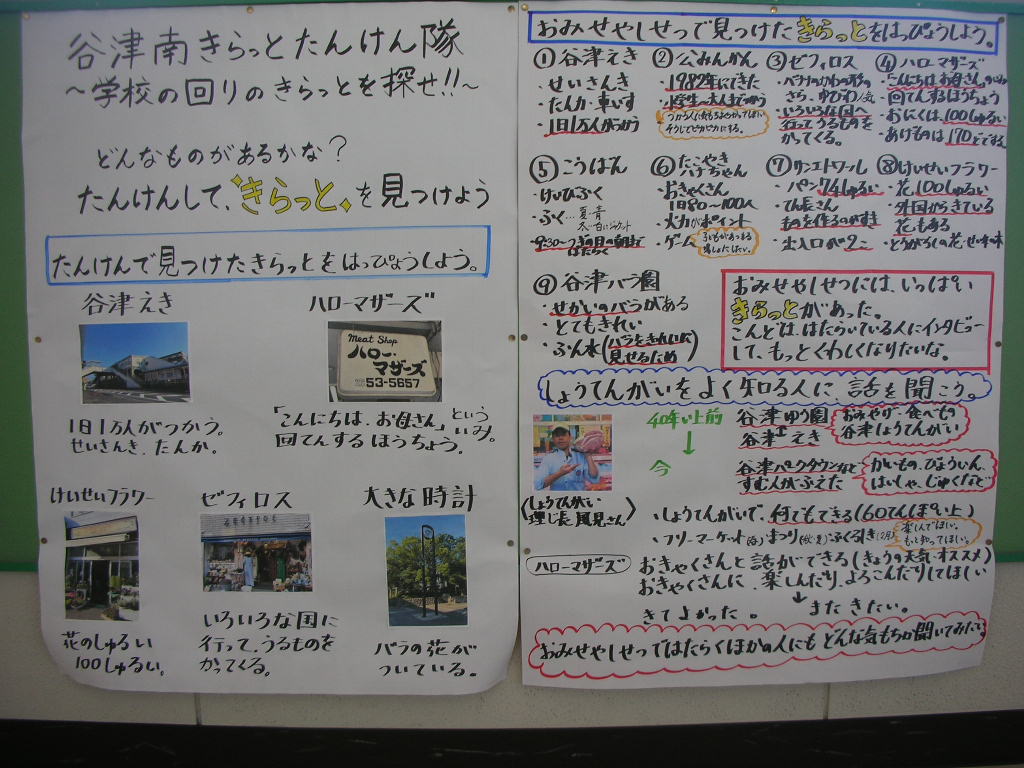 谷津南きらっとたんけん隊
～学校の回りのきらっとを探せ!!～
どんなものがあるかな？
たんけんして、きらっとを見つけよう
たんけんで見つけたきらっとをはっぴょうしよう。
谷津えき
1日1万人がつかう。
せいさんき、たんか。
ハローマザーズ
Meat Shop
ハロー・
マザーズ
53-5657
「こんにちは、お母さん」という
回てんするほうちょう。いみ。
けいせいフラワー
花のしゅるい
100しゅるい。
ゼフィロス
いろいろな国に
行って、うるものを
かってくる。
大きな時計
バラの花が
ついている。
おみせやしせつで見つけたきらっとをはっぴょうしよう。
①谷津えき
・せいさんき
・たんか・車いす
・1日1万人がつかう
②公みんかん
・1982年にできた
・小学生〜大人までつかう
つかう人に気もちよくつかってほしい
そうじしてピカピカにする。
③ゼフィロス
・バナナのかわの形の
さら、ゆびわ
・いろいろな国へ
行ってうるものを
かってくる。
④ハローマザーズ
・こんにちはお母さんのいみ
・回てんするほうちょう
・おにくは、100しゅるい
・あげものは170どでする
⑤こうばん
・けいひふく
・ふく…夏・青
冬・白いジャケット
・9:30〜つぎの日の朝まで
はたらく
⑥たこやき
ハナちゃん
・おきゃくさん
1日80〜100人
・火力がポイント
・ゲーム
子どもがあつまる
⑦サンエトワール
・パン74しゅるい
・てん長さん
ものを作るのがすき
・出入口が2こ
⑧けいせいフラワー
・花100しゅるい
・外国からきている
花もある
⑨谷津バラ園
・せかいのバラがある
・とてもきれい
・ふん水(バラをきれいに
見せるため)
おみせやしせつには、いっぱい
きらっとがあった。
こんどは、はたらいている人にインタビュー
して、もっとくわしくなりたいな。
しょうてんがいをよく知る人に、話を聞こう。
(しょうてんがい
理じ長 風見さん)
40年い上前
↓
今
谷津ゆう園
谷津えき
おみやげ、食べもの
谷津しょうてんがい
谷津パークタウンなど
すむ人がふえた
かいもの、びょういん、
はいしゃ、じゅくなど
・しょうてんがいで、何でもできる(60てんぽい上)
・フリーマーケット(毎)まつり(秋・夏)ふくびき(12月)
楽しんでほしい。
もっと知ってほしい。
ハローマザーズ
おきゃくさんと話ができる(きょうの天気・オススメ)
おきゃくさんに、楽しんだり、よろこんだりしてほしい
↓
きてよかった。 またきたい。
おみせやしせつではたらくほかの人にもどんな気もちか聞いてみたい。